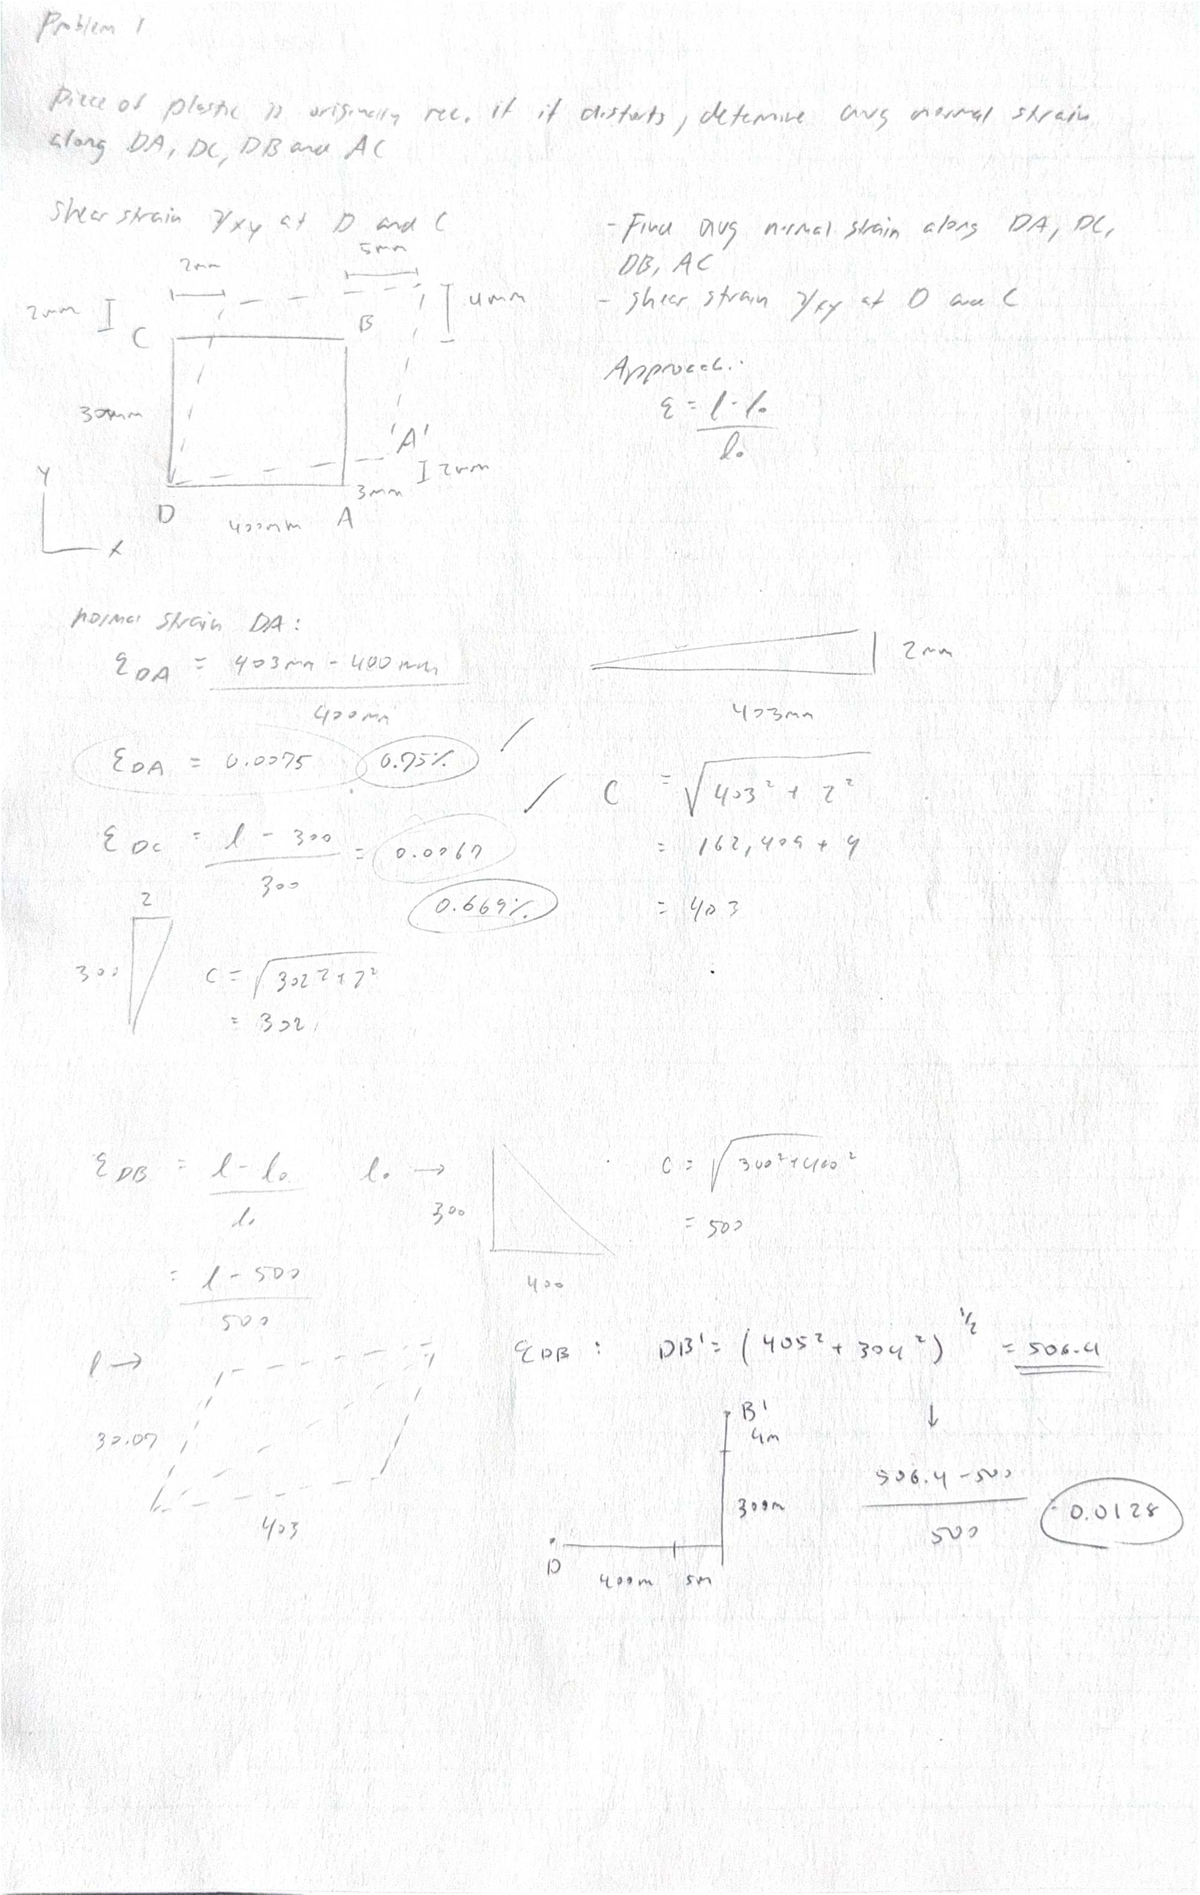 Problem 1
Piece of plastic is originally rec. if it distorts, determine avg normal strain
along DA, DC, DB and AC
Shear strain γxy at D and C
- Find avg normal strain along DA, DC,
DB, AC
- shear strain γxy at D and C
2mm
5mm
2mm
C
B
4mm
300mm
A'
2mm
3mm
D
400mm
A
Y
X
Approach:
ε = l - l₀ / l₀
normal strain DA:
ε DA = 403mm - 400mm / 400mm
2mm
403mm
ε DA = 0.0075 0.75%
C = √403² + 2²
= 162,409 + 4
= 403
ε DC = l - 300 / 300 = 0.0067
0.669%
2
300
C = √302² + 2²
= 302
ε DB = l - l₀ / l₀
l₀ →
300
400
C = √300² + 400²
= 500
= l - 500 / 500
l →
30.07
403
ε DB : DB' = (405² + 304²)^1/2 = 506.4
B'
4m
300m
D
400m 5m
↓
506.4 - 500 / 500
0.0128